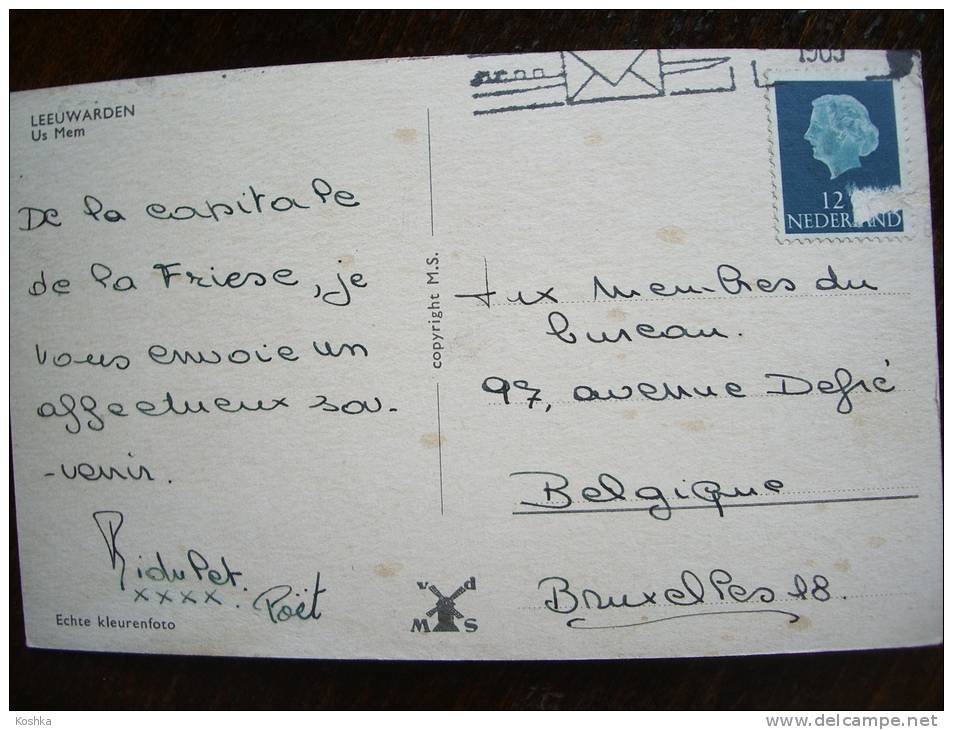 LEEUWARDEN
Us Mem
De la capitale
de la Friese, je
vous envoie un
affectueux sou-
-venir.
xxxx. Poët
Echte kleurenfoto
copyright M.S.
v d
M S
12
NEDERLAND
Aux Membres du
bureau.
97, avenue Defré
Belgique
Bruxelles 18.
Koshka
www.delcampe.net